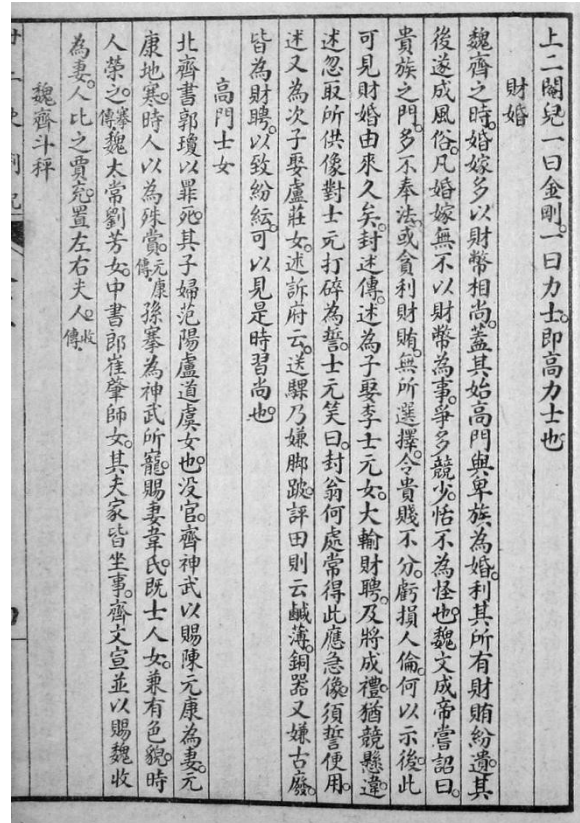 上二閹兒一曰金剛一曰力士即高力士也
財婚
魏齊之時婚嫁多以財幣相尚蓋其始高門與卑族為婚利其所有財賄紛遺其
後遂成風俗凡婚嫁無不以財幣為事爭多競少恬不為怪也魏文成帝嘗詔曰
貴族之門多不奉法或貪利財賄無所選擇令貴賤不分虧損人倫何以示後此
可見財婚由來久矣封述傳述為子娶李士元女大輸財聘及將成禮猶競懸違
述忽取所供像對士元打碎為誓士元笑曰封翁何處常得此應急像須誓便用
述又為次子娶盧莊女述訴府云送騾乃嫌脚跛評田則云鹹薄銅器又嫌古廢
皆為財聘以致紛紜可以見是時習尚也
高門士女
北齊書郭瓊以罪死其子婦范陽盧道虞女也没官齊神武以賜陳元康為妻元
康地寒時人以為殊賞元康傳孫搴為神武所寵賜妻韋氏既士人女兼有色貌時
人榮之搴傳魏太常劉芳女中書郎崔肇師女其夫家皆坐事齊文宣並以賜魏收
為妻人比之賈充置左右夫人收傳
魏齊斗秤